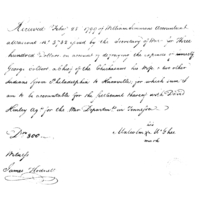 Received Feby 22 1799 of William Simmons Accountant
a Warrant No 3732 Signed by the Secretary of War for Three
hundred Dollars on account of defraying the expences of
George Colbert a chief of the Chickasaws his Wife & two other
Indians from Philadelphia to Knoxville, for which sum I am
to be accountable for the settlement thereof with David
Henley Agt for the War Department in Tennessee
Drs 300
Malcolm McGhee
mark
Witness
James